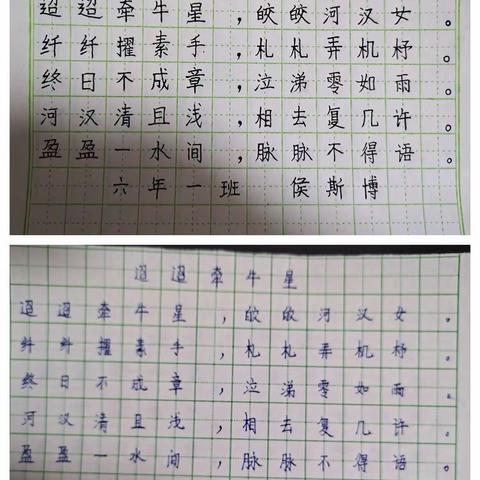 迢迢牵牛星，皎皎河汉女。
纤纤擢素手，札札弄机杼。
终日不成章，泣涕零如雨。
河汉清且浅，相去复几许。
盈盈一水间，脉脉不得语。
六年一班 侯斯博
迢迢牵牛星
迢迢牵牛星，皎皎河汉女。
纤纤擢素手，札札弄机杼。
终日不成章，泣涕零如雨。
河汉清且浅，相去复几许。
盈盈一水间，脉脉不得语。